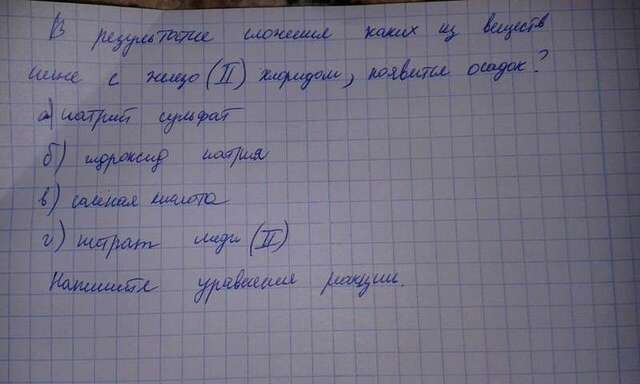 В результате сложения каких из веществ
ниже с железо (II) хлоридом, появится осадок?
а) натрий сульфат
б) гидроксид натрия
в) соляная кислота
г) нитрат меди (II)
Напишите уравнения реакции.